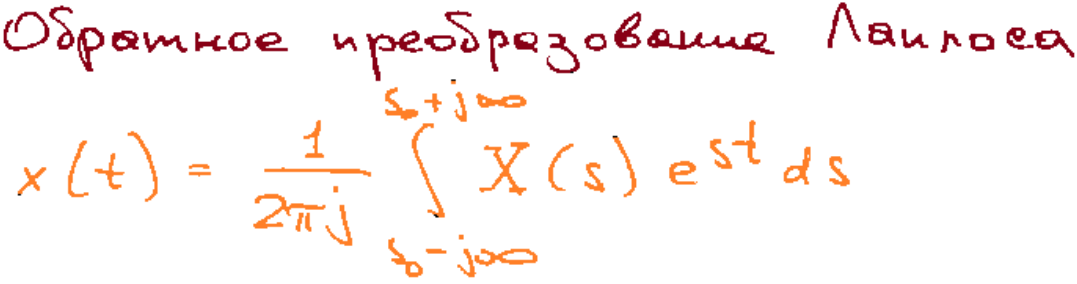 Обратное преобразование Лапласа
x(t) = \frac{1}{2πj} \int_{s_0-j∞}^{s_0+j∞} X(s) e^{st} ds